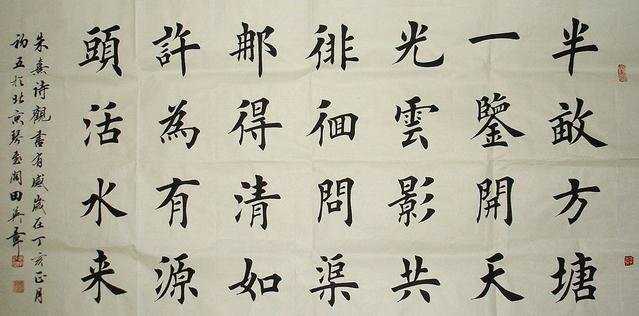 半畝方塘
一鑒開天
光雲影共
徘徊問渠
那得清如
許為有源
頭活水来
朱熹詩觀書有感歲在丁亥正月
初五於北京閣田英章